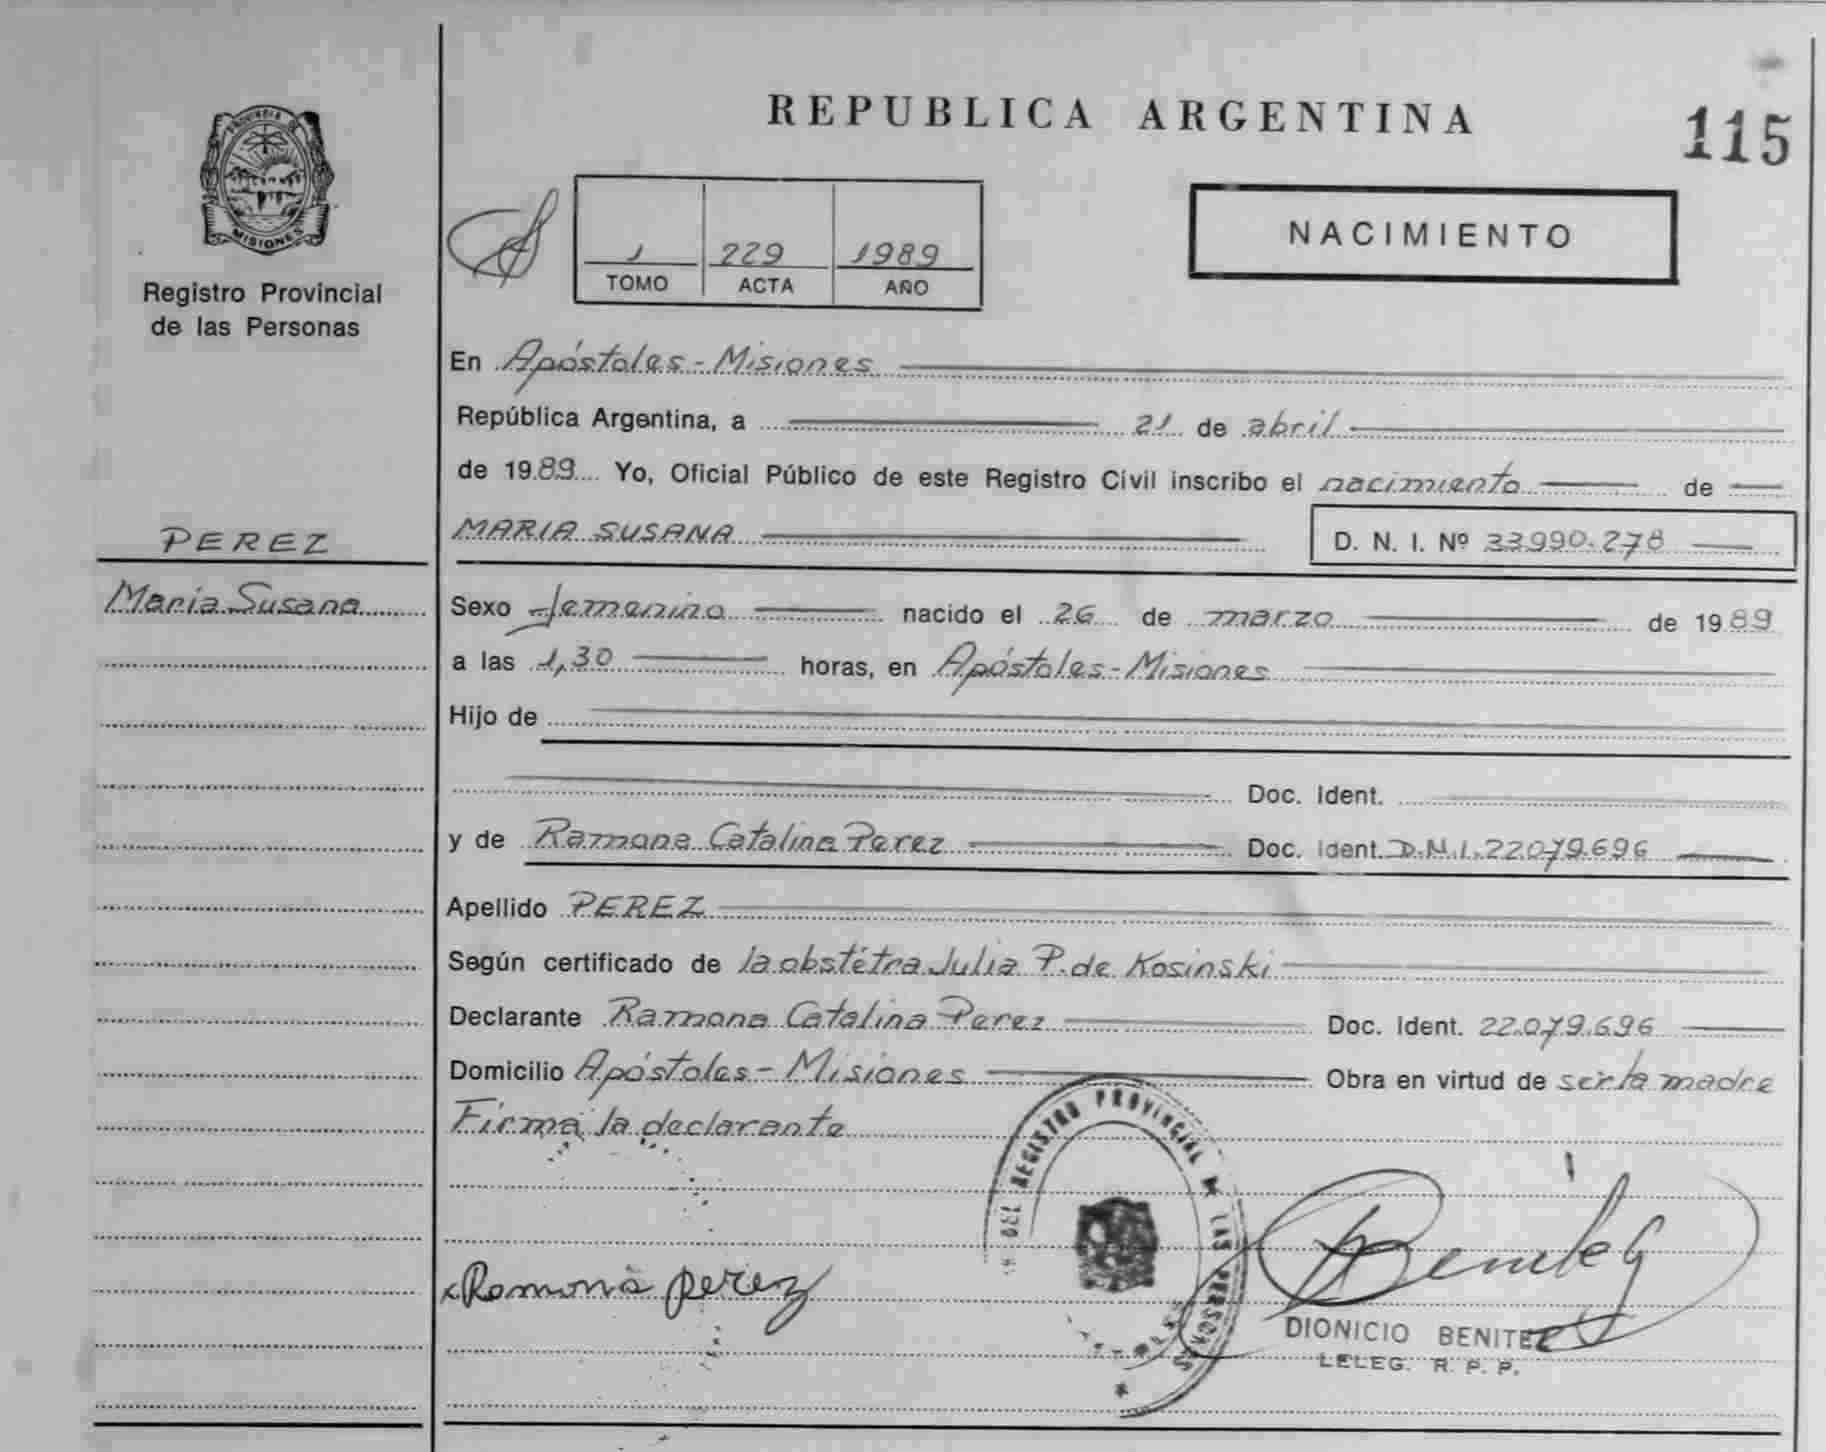 PROVINCIA DE
MISIONES
Registro Provincial
de las Personas
PEREZ
Maria Susana
REPUBLICA ARGENTINA
115
1 229 1989
TOMO ACTA AÑO
NACIMIENTO
En Apóstoles - Misiones
República Argentina, a 21 de abril
de 1989 Yo, Oficial Público de este Registro Civil inscribo el nacimiento de
MARIA SUSANA D. N. I. Nº 33990.278
Sexo femenino nacido el 26 de marzo de 1989
a las 1,30 horas, en Apóstoles - Misiones
Hijo de
Doc. Ident.
y de Ramona Catalina Perez Doc. Ident. D.N.I. 22.079.696
Apellido PEREZ
Según certificado de la obstétra Julia P. de Kosinski
Declarante Ramona Catalina Perez Doc. Ident. 22.079.696
Domicilio Apóstoles - Misiones Obra en virtud de ser la madre
Firma la declarante
DEL REGISTRO PROVINCIAL DE LAS PERSONAS
Ramona perez
Benitez
DIONICIO BENITEZ
DELEG. R. P. P.